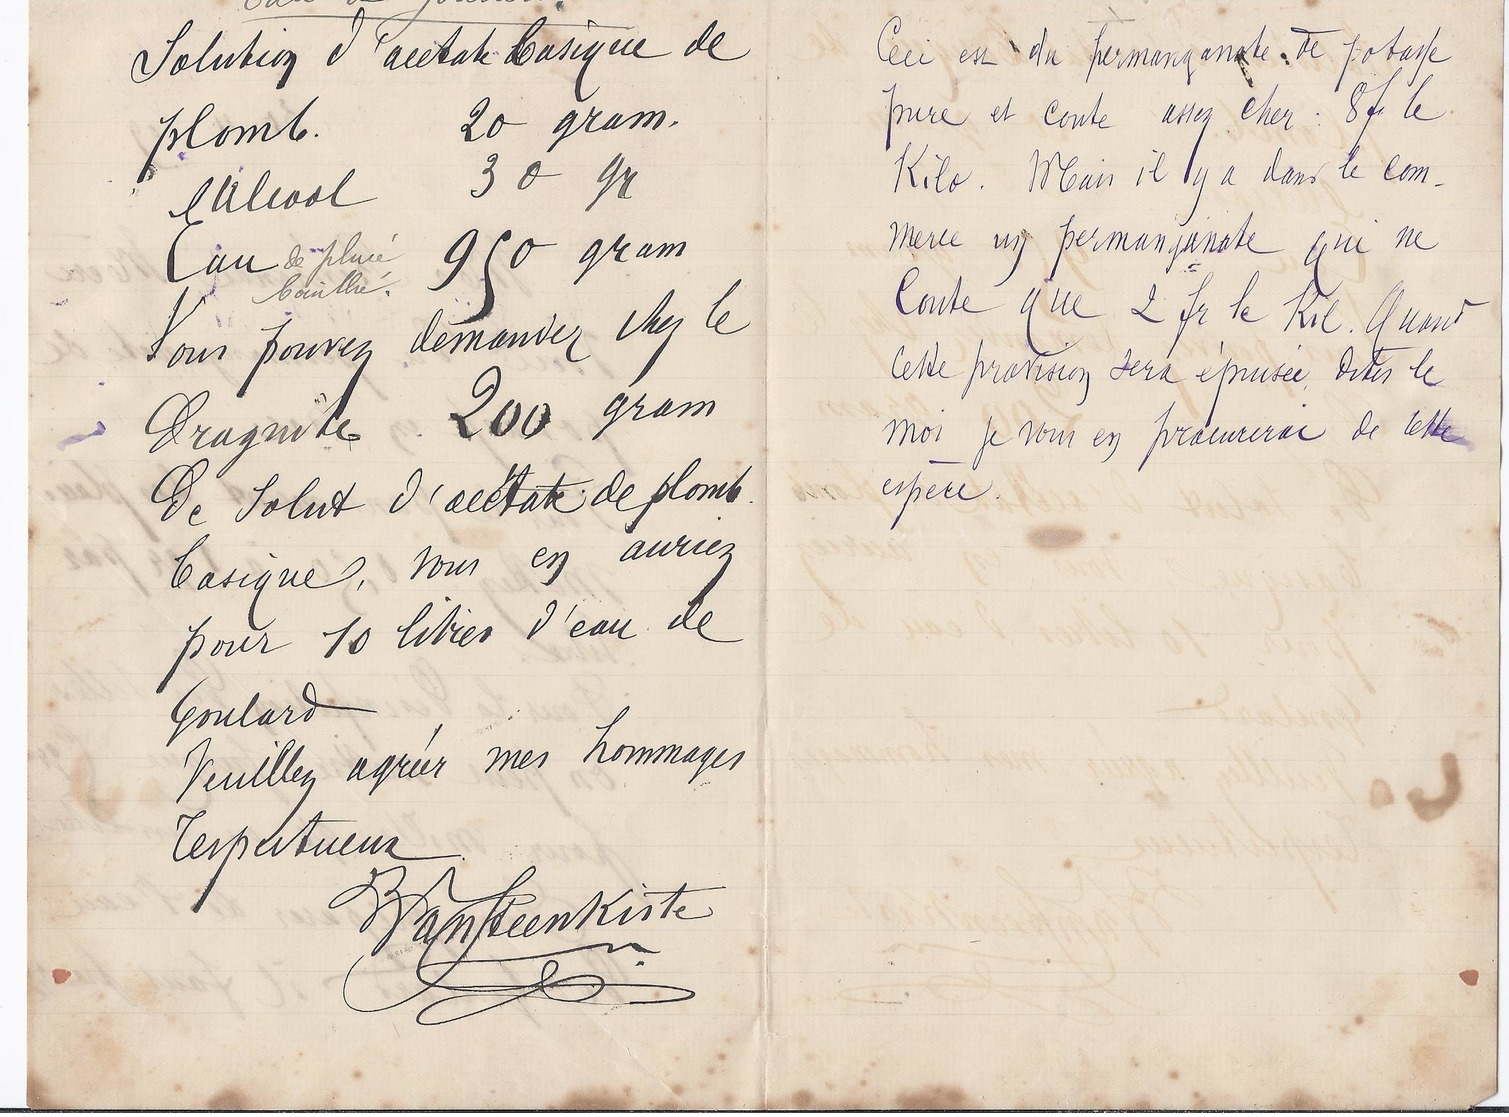 Eau de Goulard.
Solution d'acétate basique de
plomb. 20 gram.
Alcool 30 gr
Eau de pluie 950 gram
bouillie.
Vous pouvez demander chez le
Droguiste 200 gram
De Solut d'acétate de plomb
basique, vous en auriez
pour 10 litres d'eau de
Goulard
Veuillez agréer mes hommages
respectueux
VanSteenkiste
Ceci est du permanganate de potasse
pure et coute assez cher : 8 f le
Kilo. Mais il y a dans le com-
merce un permanganate qui ne
Coute que 2 fr le Kil. Quand
cette provision sera épuisée, dites le
moi je vous en procurerai de cette
espèce.